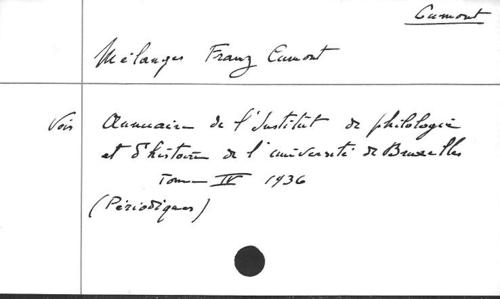 Cumont
Mélanges Franz Cumont
Voir Annuaire de l'Institut de philologie
et d'histoire de l'université de Bruxelles
Tome IV 1936
(Périodiques)